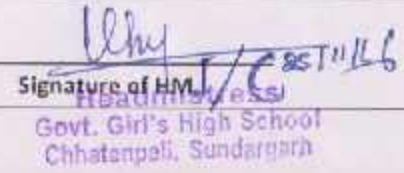 I/C
Signature of HM
Headmistress
Govt. Girl's High School
Chhatenpali, Sundargarh